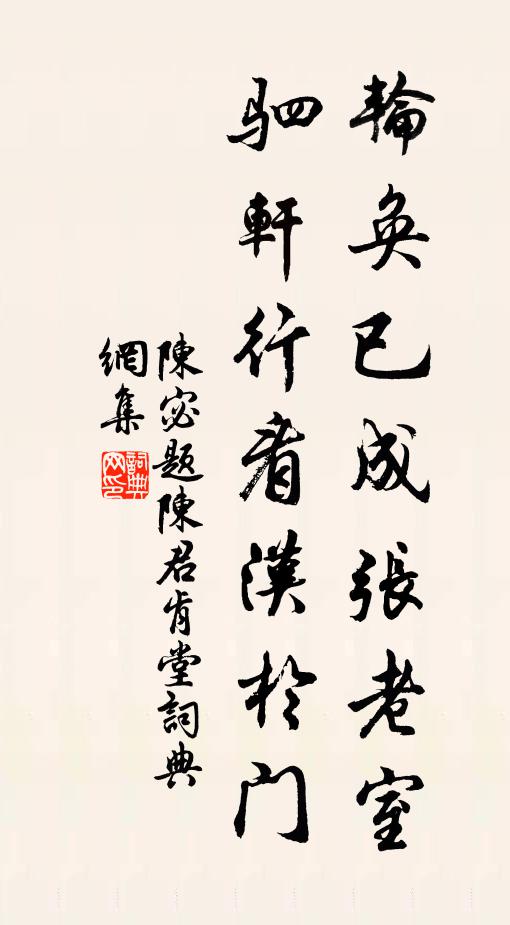 輪奐已成張老室
駟軒行看漢於門
陳宓題陳君肯堂詞典
網集
詞典網印